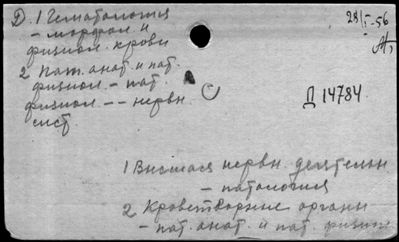 Д. 1 Гематология
28/I-56
- морфол. и
физиол. крови
2 Пат. анат. и пат.
физиол. - пат.
физиол. - - нервн.
сист.
Д 14784
1 Высшая нервн. деятельн
- патология
2 Кроветворные органы
- пат. анат. и пат. физиол